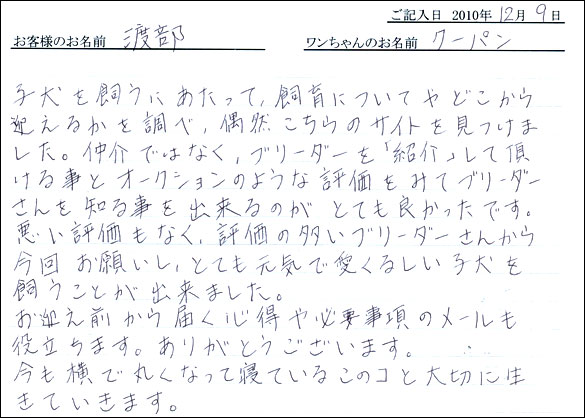 ご記入日 2010年 12月 9日
お客様のお名前 渡部 ワンちゃんのお名前 クーパン
子犬を飼うにあたって、飼育についてや どこから
迎えるかを調べ、偶然こちらのサイトを見つけま
した。仲介ではなく、ブリーダーを「紹介」して頂
ける事と オークションのような評価をみてブリーダー
さんを知る事を出来るのが とても良かったです。
悪い評価もなく、評価の多いブリーダーさんから
今回 お願いし、とても元気で愛くるしい子犬を
飼うことが出来ました。
お迎え前から届く心得や必要事項のメールも
役立ちます。ありがとうございます。
今も横で丸くなって寝ているこのコと大切に生
きていきます。